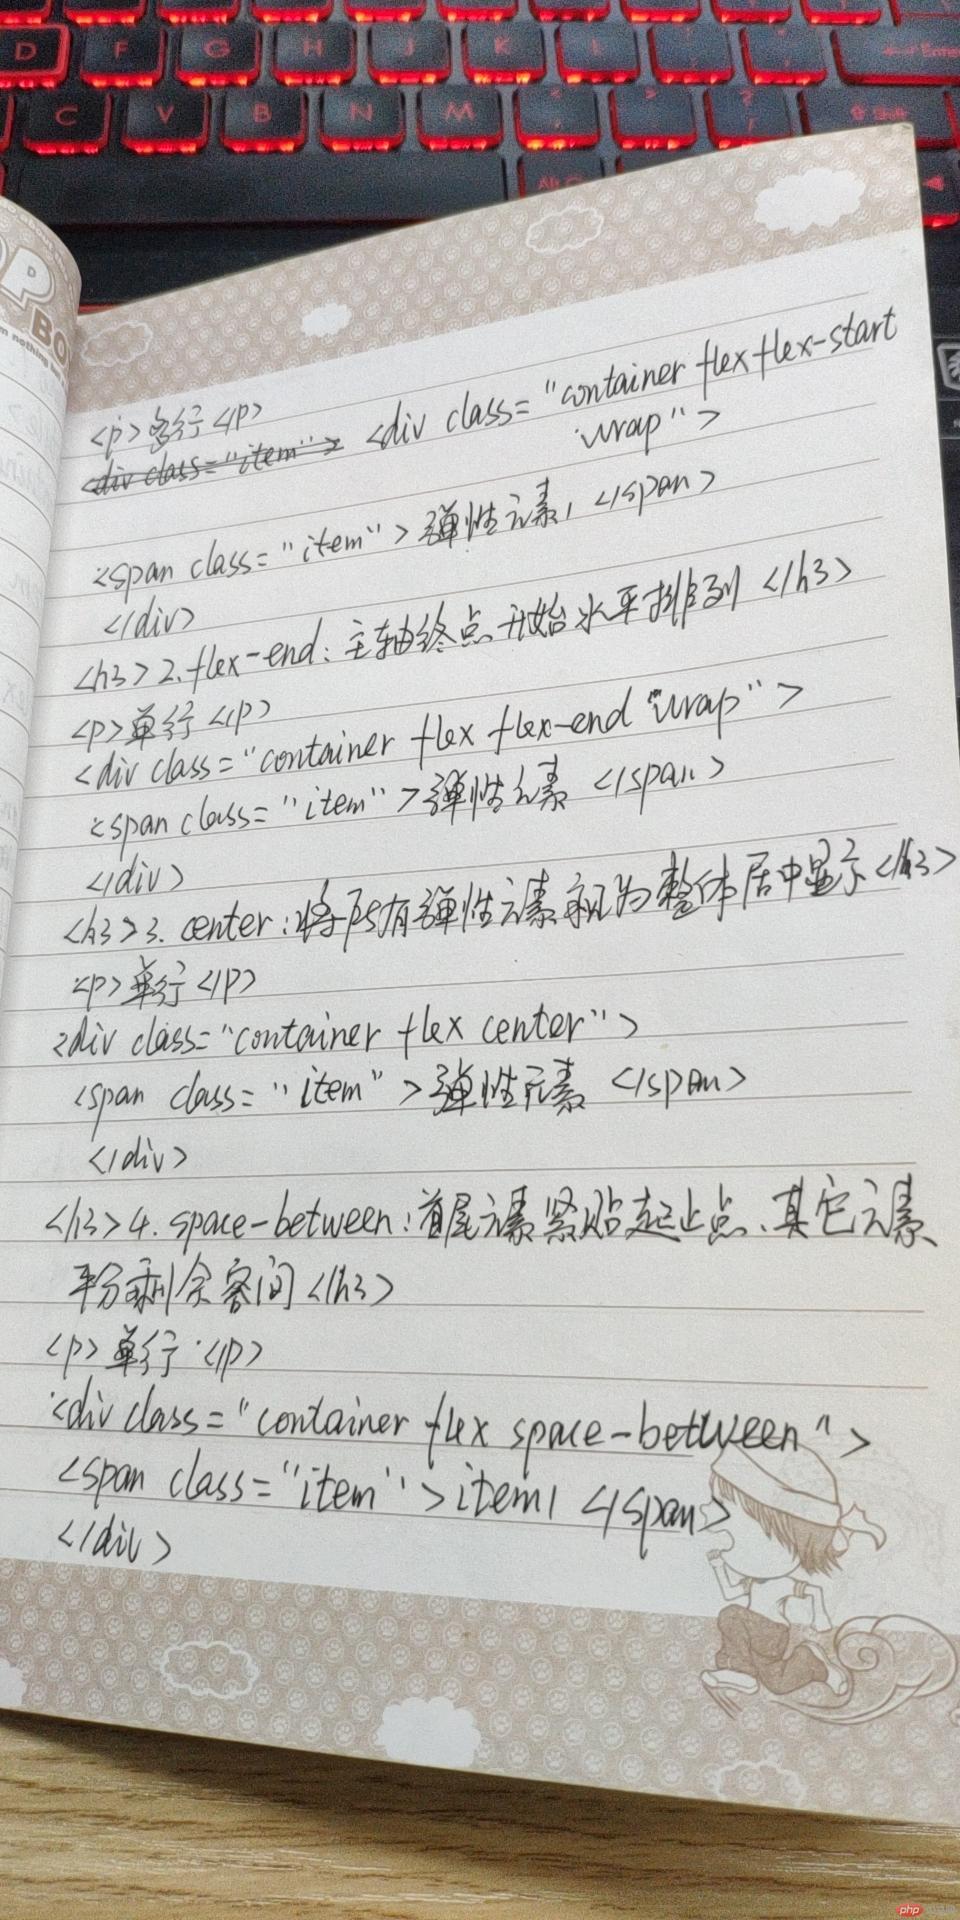 D F G H J K L Enter
C V B N M < > ? Shift
Alt
D
BO
m nothing
<p>多行<p>
<div class="item"> <div class="container flex flex-start
wrap">
<span class="item">弹性元素1</span>
</div>
<h3>2.flex-end:主轴终点开始水平排列</h3>
<p>单行</p>
<div class="container flex flex-end "wrap">
<span class="item">弹性元素</span>
</div>
<h3>3.center:将所有弹性元素视为整体居中显示</h3>
<p>单行</p>
<div class="container flex center">
<span class="item">弹性元素</span>
</div>
<h3>4.space-between:首尾元素紧贴起止点、其它元素
平分剩余客间</h3>
<p>单行</p>
<div class="container flex space-between">
<span class="item">item1</span>
</div>
php